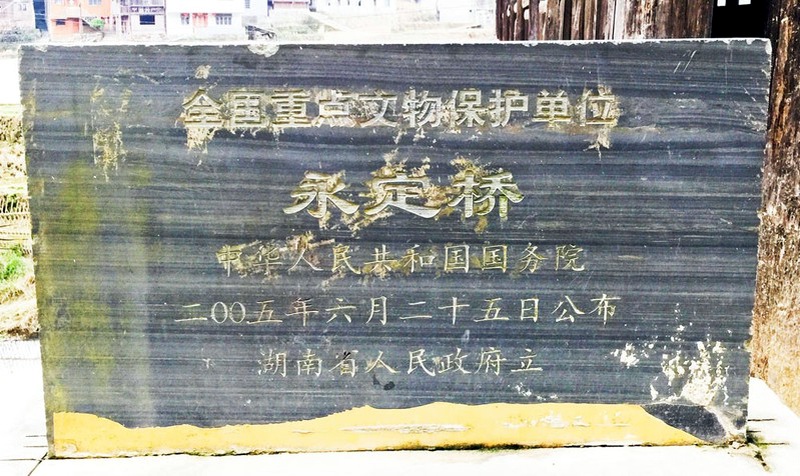 全国重点文物保护单位
永定桥
中华人民共和国国务院
二00五年六月二十五日公布
湖南省人民政府立